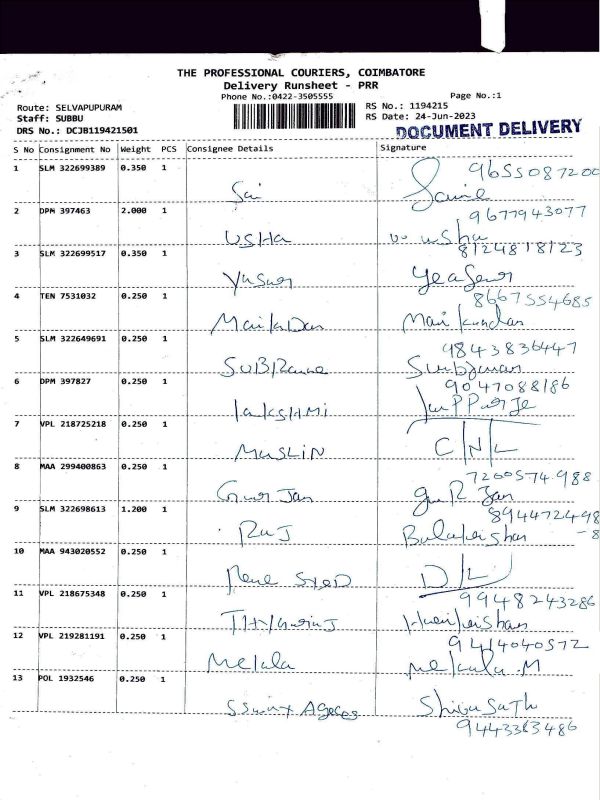 THE PROFESSIONAL COURIERS, COIMBATORE
Delivery Runsheet - PRR
Phone No.:0422-3505555
Page No.:1
Route: SELVAPUPURAM
RS No.: 1194215
Staff: SUBBU
RS Date: 24-Jun-2023
DRS No.: DCJB119421501
DOCUMENT DELIVERY
S No Consignment No Weight PCS Consignee Details Signature
1 SLM 322699389 0.350 1 9655087200
Sai
2 DPM 397463 2.000 1 9677943077
USHA
8124818123
3 SLM 322699517 0.350 1
4 TEN 7531032 0.250 1 8667554685
Manikandan
5 SLM 322649691 0.250 1 9843836447
6 DPM 397827 0.250 1 9047088186
LAKSHMI
7 VPL 218725218 0.250 1
MUSLIN C/N/L
8 MAA 299400863 0.250 1 7200574988
9 SLM 322698613 1.200 1 894472498
-8
RAJ Balakrishan
10 MAA 943020552 0.250 1
SYED D/L
11 VPL 218675348 0.250 1 9948243286
12 VPL 219281191 0.250 1 9414040572
Mekala Mekala.M
13 POL 1932546 0.250 1
9443363486